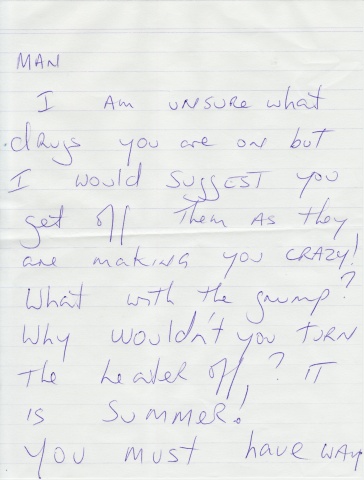 MAN
I Am UNSURE what
drugs you are on but
I would SUGGEST you
get off Them AS they
are making you CRAZY!
What with the grump?
Why wouldn't you TURN
The heater off,? IT
is SUMMER!
You must have WAY